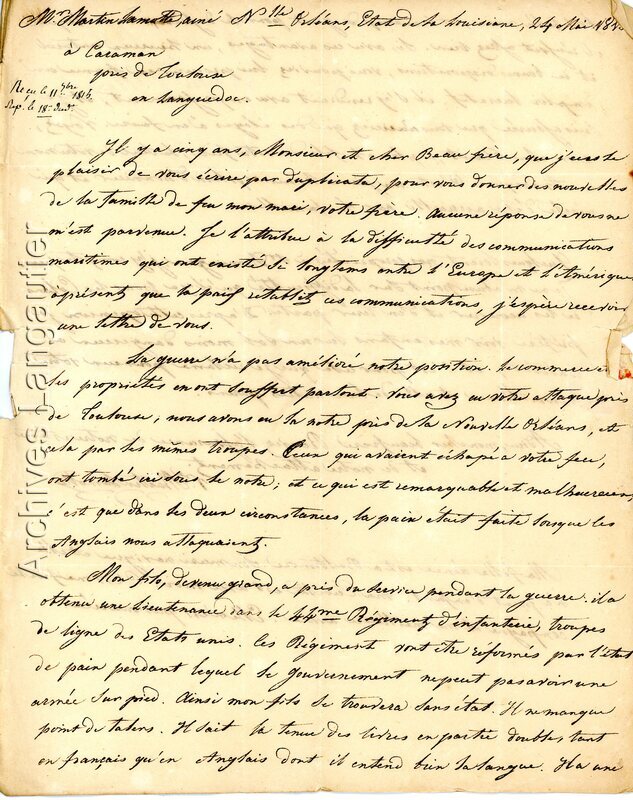 Mr Martin Lamotte, ainé Nlle Orléans, Etat de la Louisiane, 24 Mai
à Caraman
près de Toulouse
en Languedoc.
Reçu le 11 9bre 1815.
Rép. le 18 dud.
Il y a cinq ans, Monsieur et cher Beau frère, que j'eus le
plaisir de vous écrire par duplicata, pour vous donner des nouvelles
de la famille de feu mon mari, votre frère. aucune réponse de vous ne
m'est parvenue. Je l'attribue à la difficulté des communications
maritimes qui ont existé si longtems entre l'Europe et l'Amérique
àprésent que la paix retablit ces communications, j'espère recevoir
une lettre de vous.
La guerre n'a pas amélioré notre position. le commerce et
les propriétés en ont souffert partout. vous avez eu votre attaque près
de Toulouse, nous avons eu la notre près de la Nouvelle Orléans, et
cela par les mêmes troupes. Ceux qui avaient échapé a votre feu,
ont tombé ici sous le notre; et ce qui est remarquable et malheureux,
c'est que dans les deux circonstances, la paix était faite lorsque les
Anglais nous attaquaient.
Mon fils, devenu grand, a pris du service pendant la guerre. il a
obtenu une Lieutenance dans le 44me Régiment d'infanterie, troupes
de ligne des Etats unis. les Régiment vont être réformés par l'état
de paix pendant lequel le gouvernement ne peut pas avoir une
armée sur pied. Ainsi mon fils se trouvera sans état. Il ne manque
point de talens. Il sait la tenue des livres en partie double, tant
en français qu'en Anglais dont il entend bien la langue. Il a une
Archives Langautier